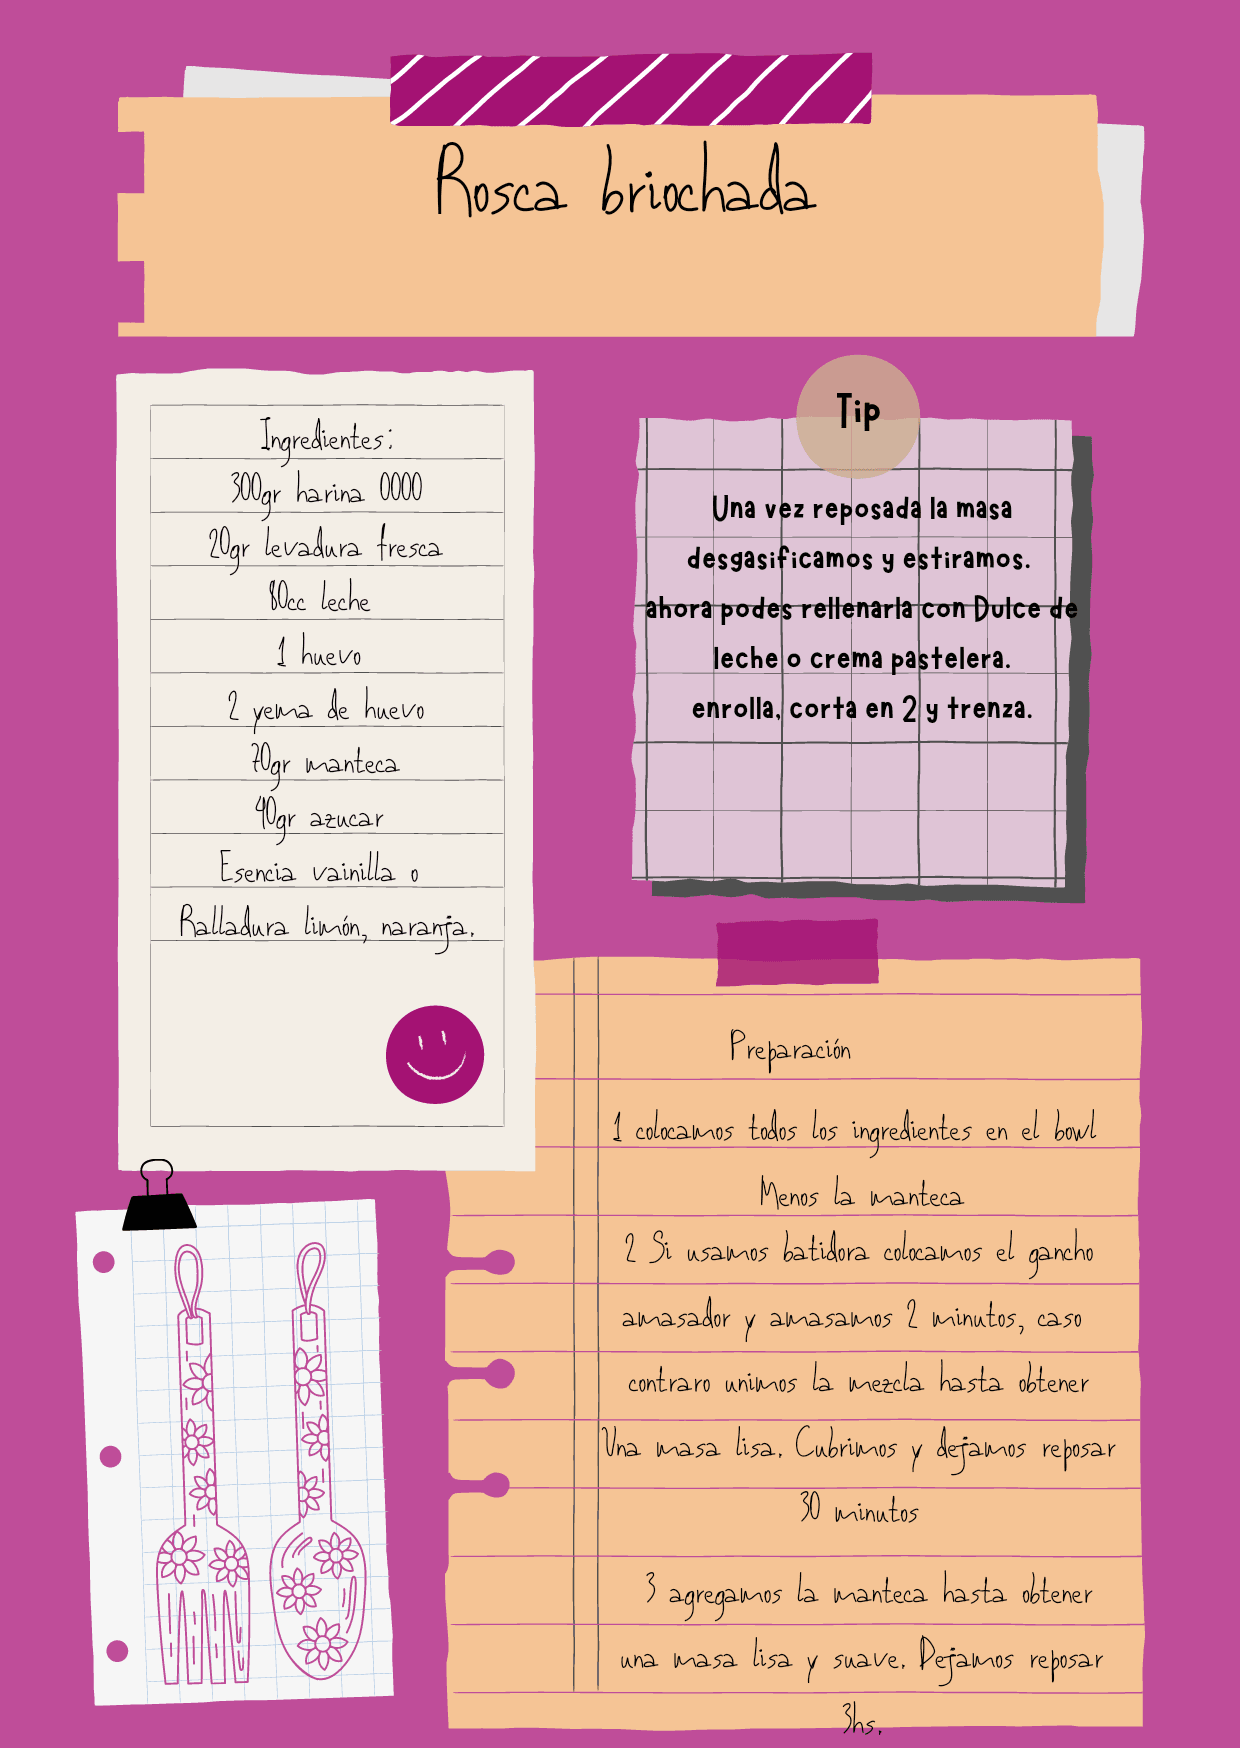 Rosca briochada
Ingredientes:
300gr harina 0000
20gr levadura fresca
80cc leche
1 huevo
2 yema de huevo
70gr manteca
40gr azucar
Esencia vainilla o
Ralladura limón, naranja.
Tip
Una vez reposada la masa
desgasificamos y estiramos.
ahora podes rellenarla con Dulce de
leche o crema pastelera.
enrolla, corta en 2 y trenza.
Preparación
1 colocamos todos los ingredientes en el bowl
Menos la manteca
2 Si usamos batidora colocamos el gancho
amasador y amasamos 2 minutos, caso
contraro unimos la mezcla hasta obtener
Una masa lisa. Cubrimos y dejamos reposar
30 minutos
3 agregamos la manteca hasta obtener
una masa lisa y suave. Dejamos reposar
3hs.